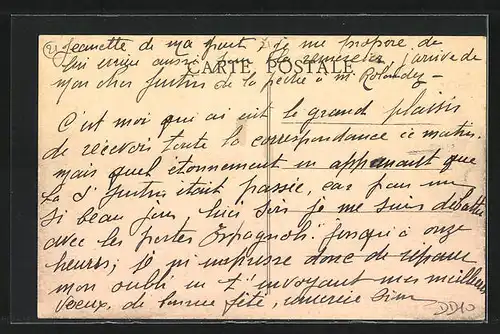 Jeanette de ma part & je me propose de
lui écrire aussi pour la remercier, j'arrive de
CARTE POSTALE
mon cher Justin de la pêche à
C'est moi qui ai eut le grand plaisir
de recevoir toute la correspondance ce matin.
mais quel étonnement en apprenant que
la St Justin était passée, car pour un
si beau jour hier soir je me suis débattu
avec les postes Espagnols jusqu'à onze
heures; je m'empresse donc de réparer
mon oubli en t'envoyant mes meilleurs
voeux de bonne fête,
DD10